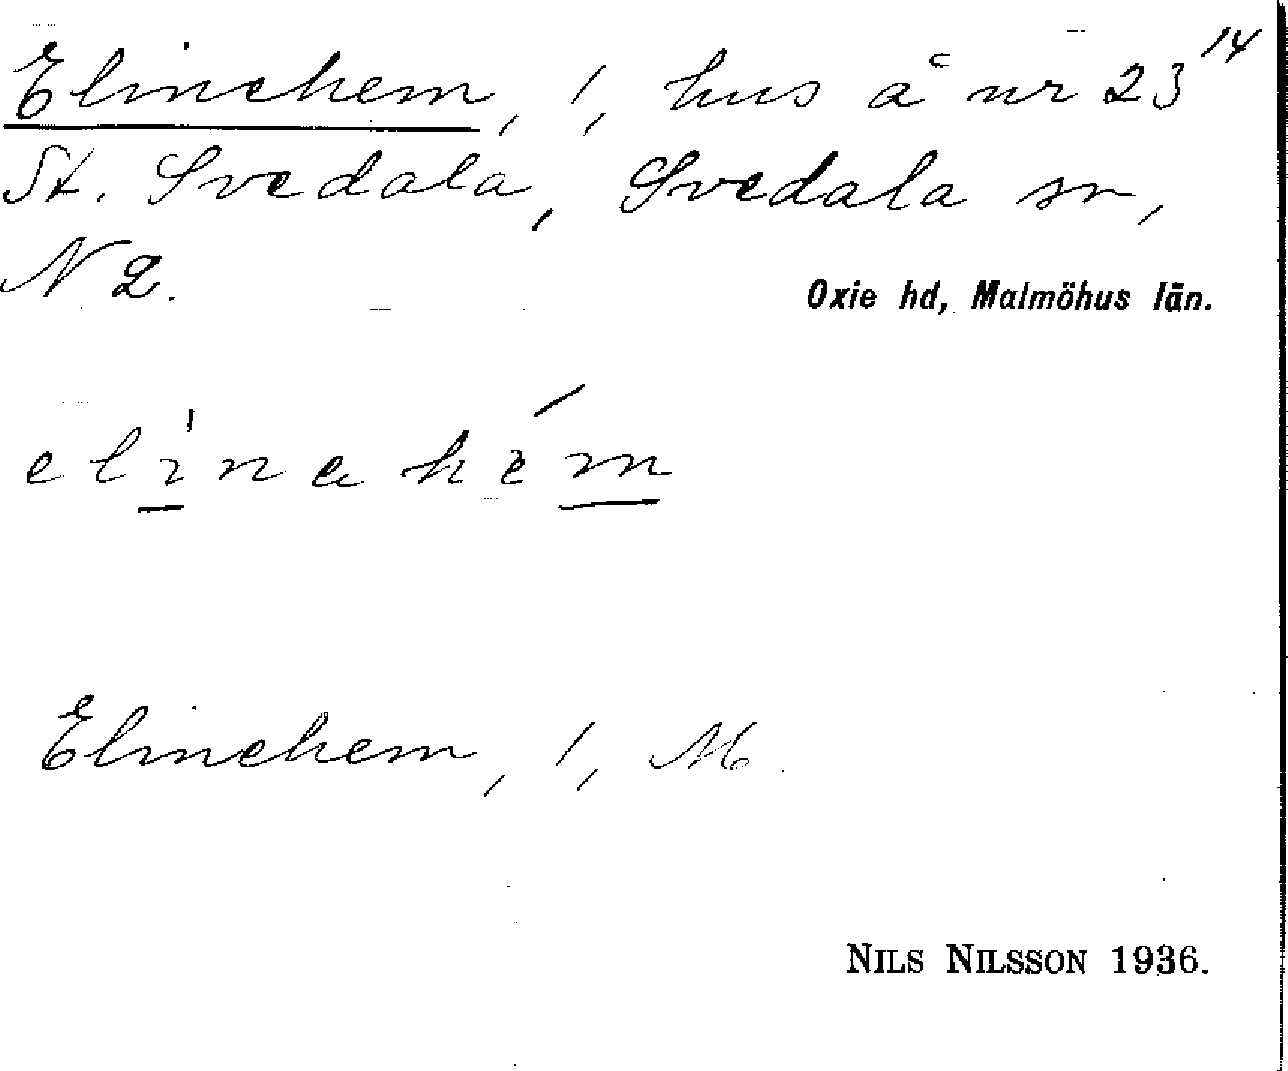 Elinehem, 1, hus å nr 23¹⁴
St. Svedala, Svedala sn,
N 2.
Oxie hd, Malmöhus län.
elinahem
Elinehem, 1, M.
NILS NILSSON 1936.